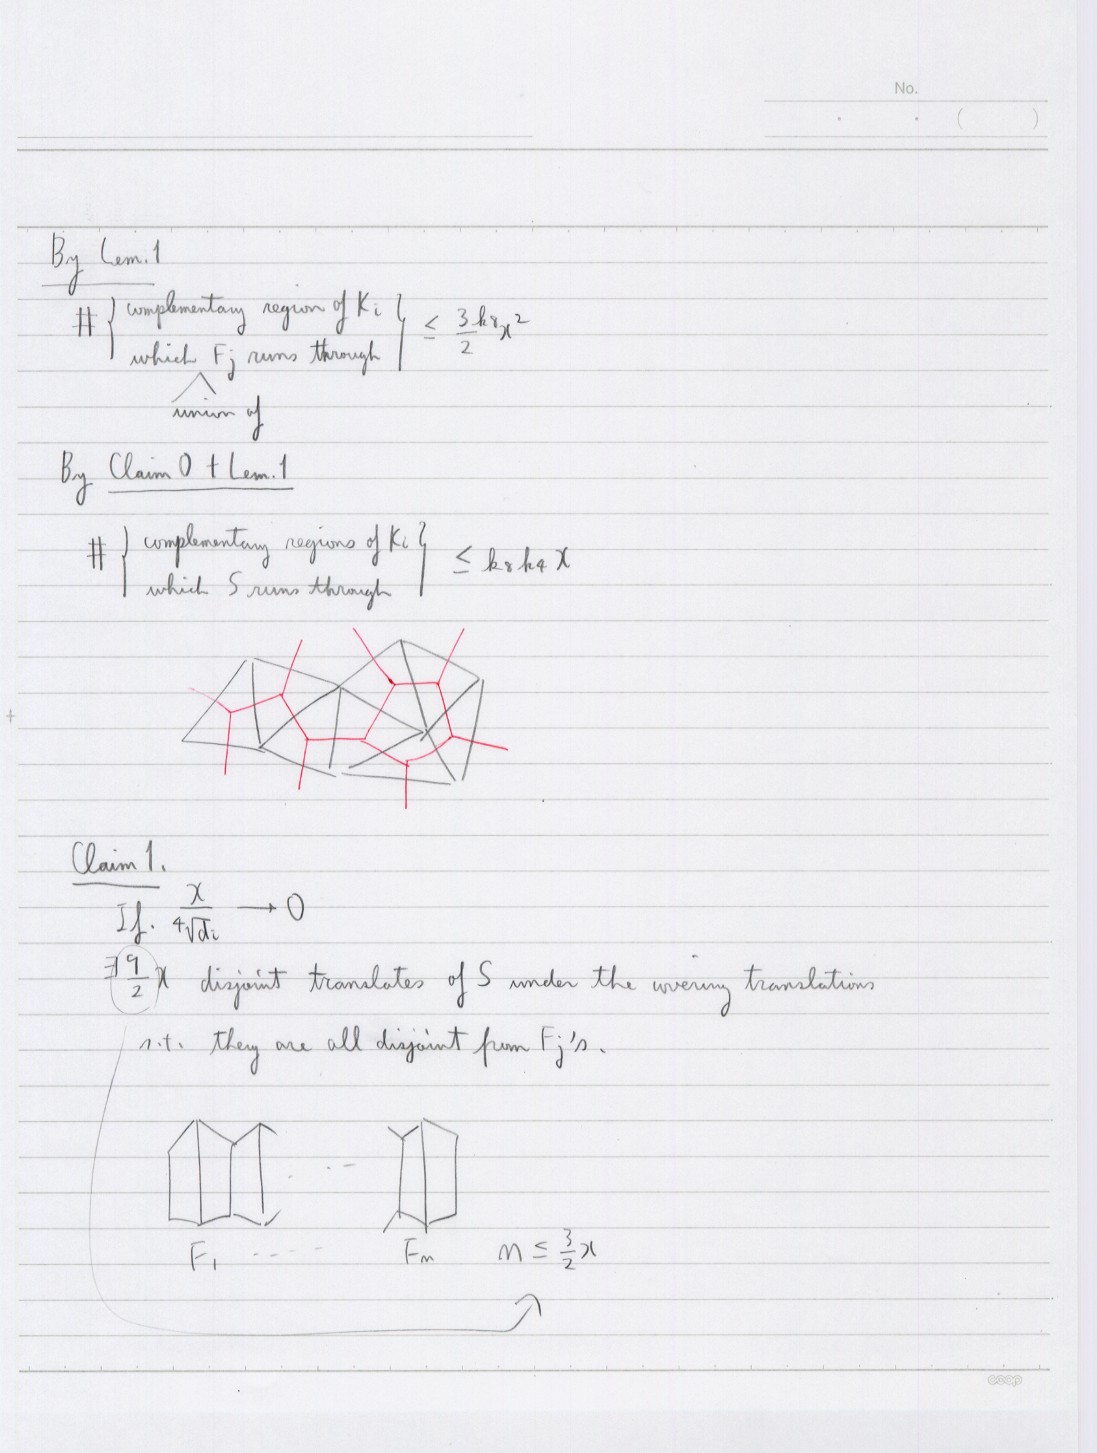 No.
( )
By Lem.1
# { complementary region of Ki
which Fj runs through } ≤ 3k8/2 χ²
union of
By Claim 0 + Lem.1
# { complementary regions of Ki
which S runs through } ≤ k8k4χ
Claim 1.
If. χ/⁴√di → 0
∃ 9/2 χ disjoint translates of S under the covering translations
s.t. they are all disjoint from Fj's.
F1 ---- Fn n ≤ 3/2 χ
coop